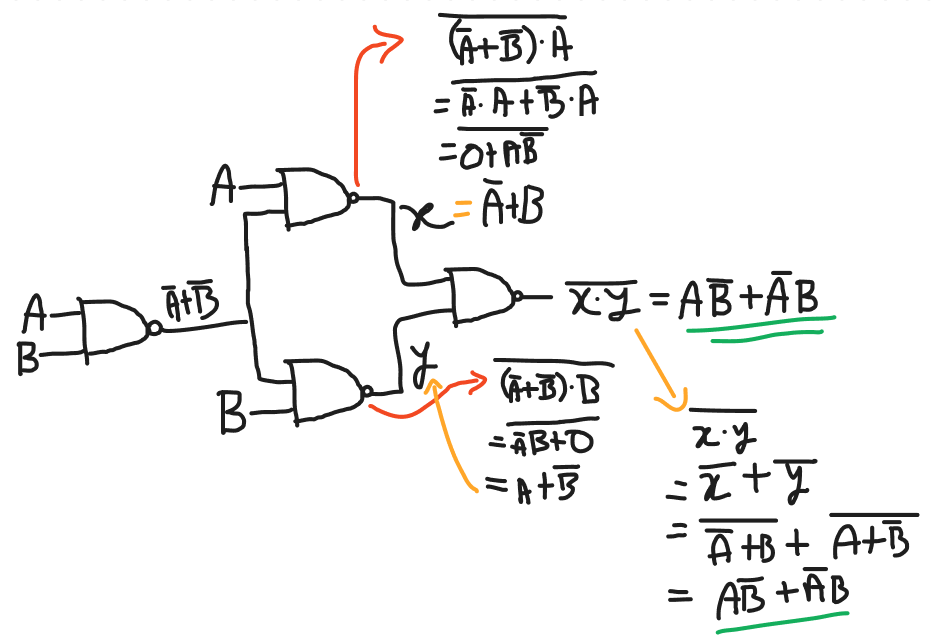 $\overline{(\overline{A}+\overline{B})\cdot A}$
$=\overline{\overline{A}\cdot A+\overline{B}\cdot A}$
$=\overline{0+A\overline{B}}$
A
$x=\overline{A}+B$
A
$\overline{A}+\overline{B}$
B
$\overline{x\cdot y}=A\overline{B}+\overline{A}B$
y
B
$\overline{(\overline{A}+\overline{B})\cdot B}$
$=\overline{\overline{A}B+0}$
$=A+\overline{B}$
$\overline{x\cdot y}$
$=\overline{x}+\overline{y}$
$=\overline{\overline{A}+B}+\overline{A+\overline{B}}$
$=A\overline{B}+\overline{A}B$